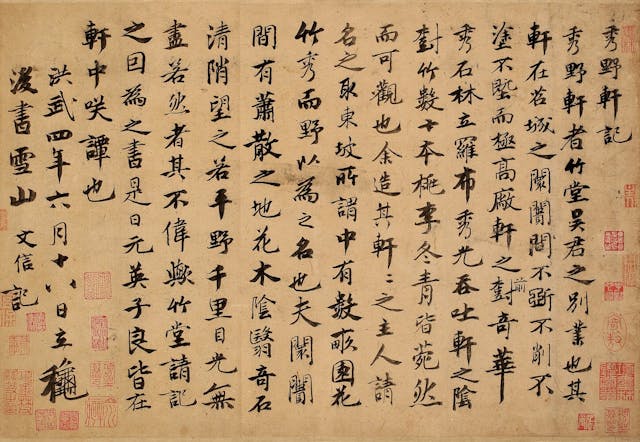 秀野軒記
秀野軒者竹堂吳君之別業也其
軒在苕城之闤闠間不斲不削不
塗不塈而極高廠軒之前對奇華
秀石林立羅布秀光吞吐軒之陰
對竹數十本桃李冬青皆菀然
而可觀也余造其軒〻之主人請
名之取東坡所謂中有數畝園花
竹秀而野以為之名也夫闤闠
間有蕭散之地花木陰翳奇石
清陗望之若平野千里目光無
盡若然者其不偉歟竹堂請記
之因為之書是日元英子良皆在
軒中咲譚也
洪武四年六月十八日立龝
後書雪山文信記